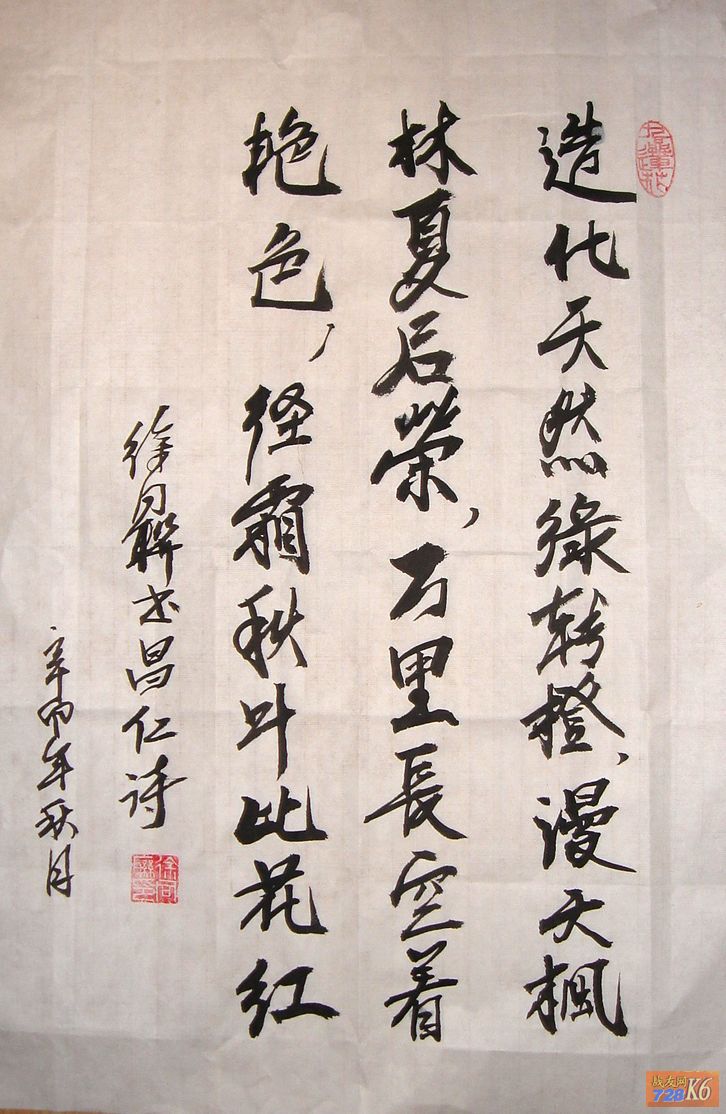 造化天然绿转橙，漫天枫
林夏后荣，万里長空着
艳色，经霜秋叶比花红
徐同联书昌仁诗
辛卯年秋月
战友网
728K6